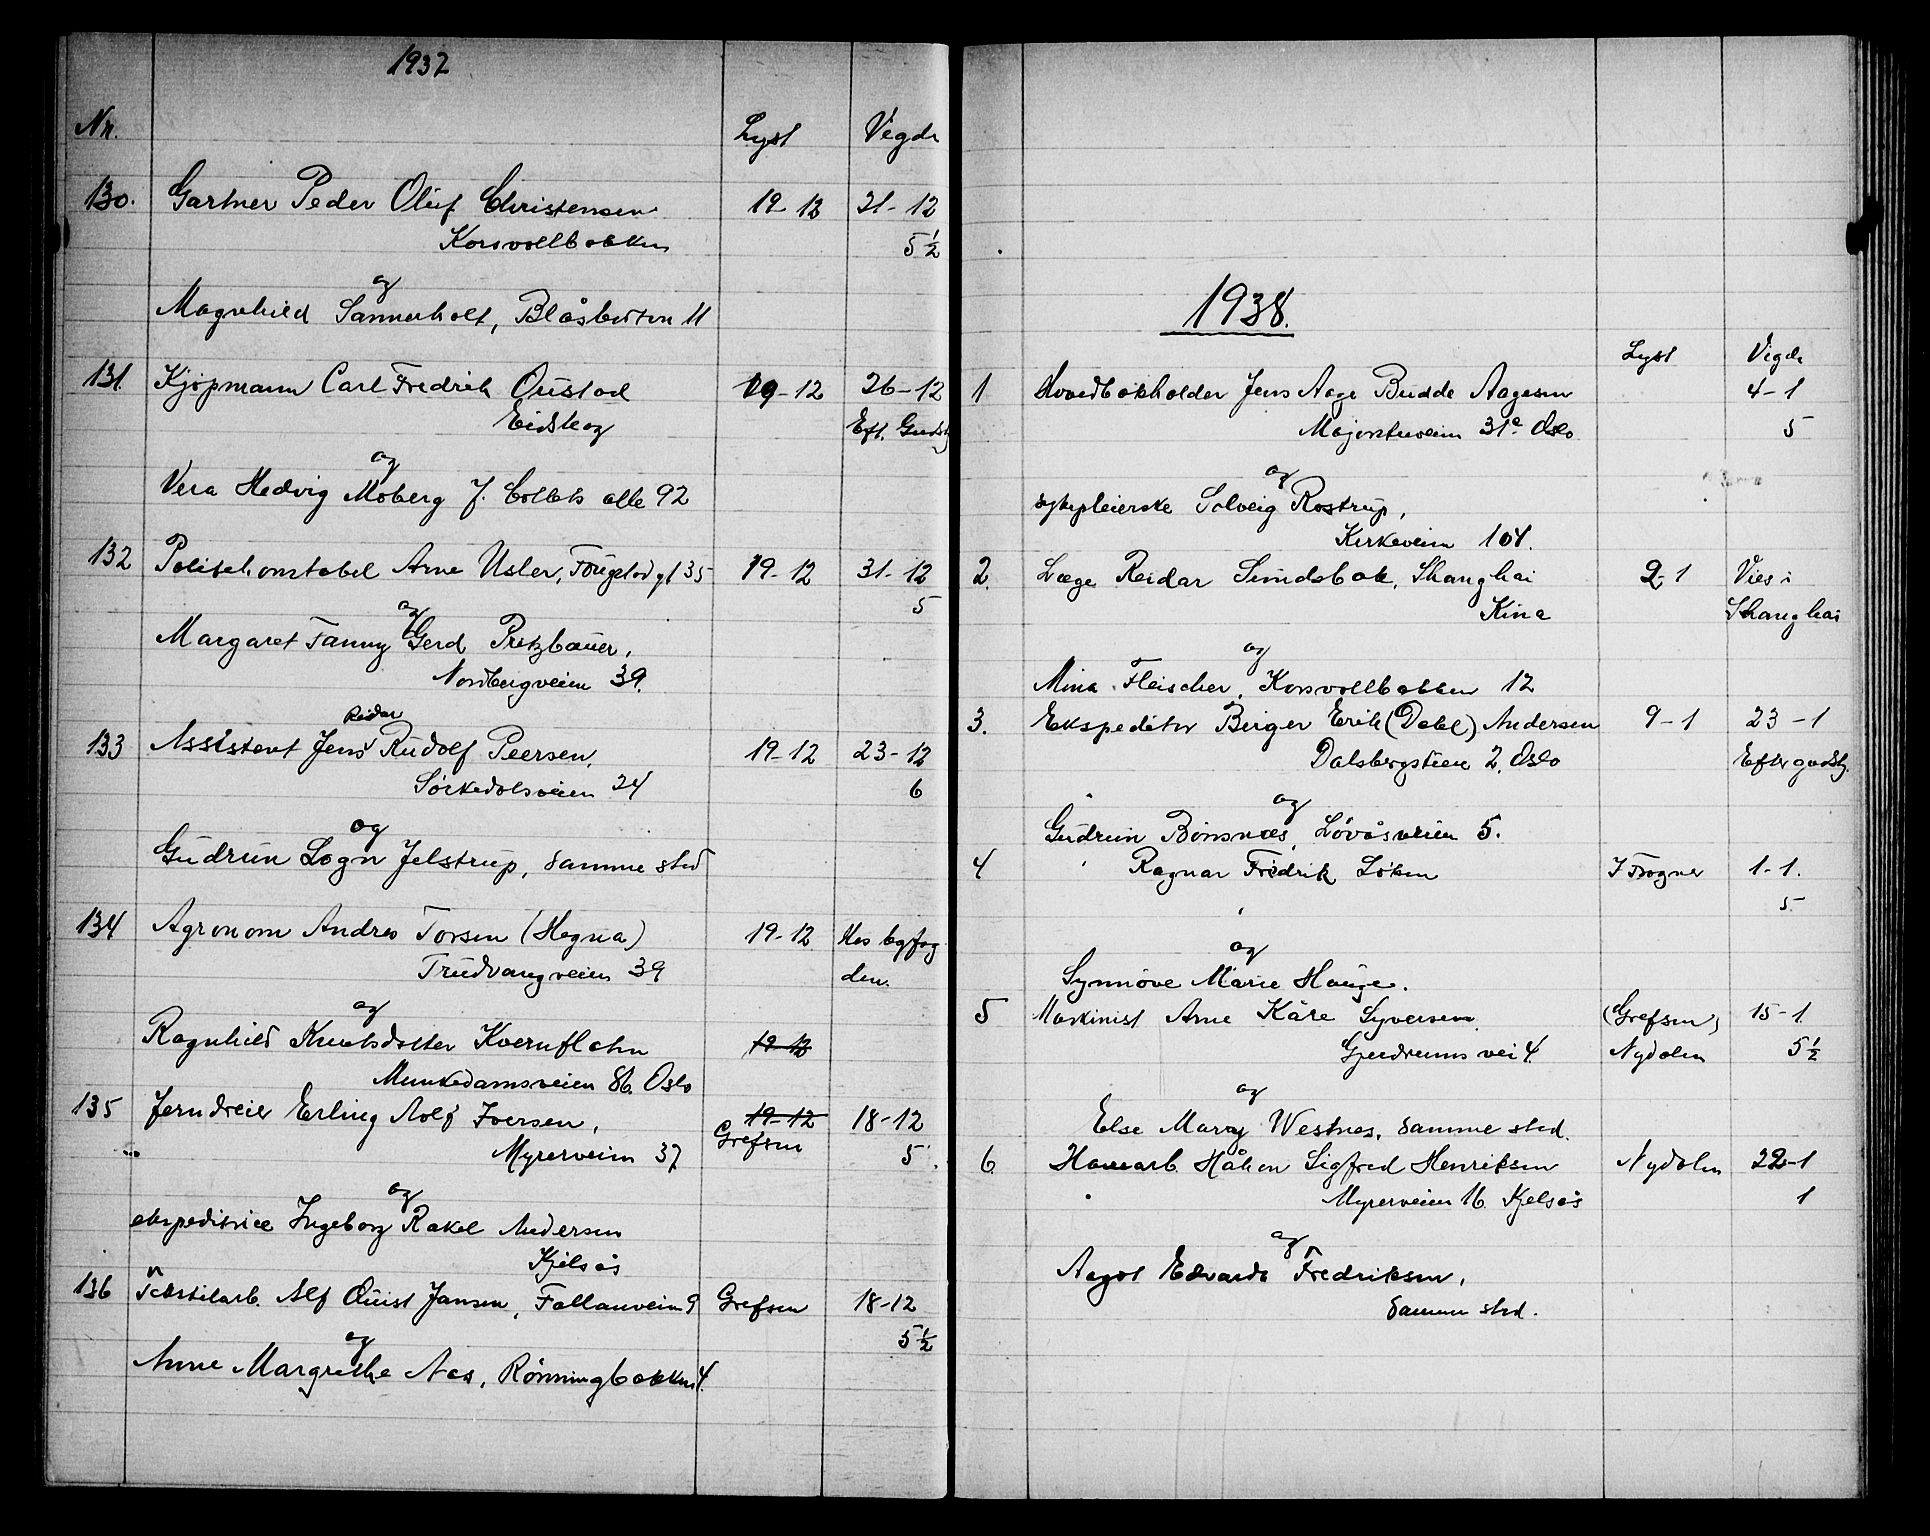 1937
Nr. Lyst Vigde
130. Gartner Peder Oluf Christensen 19-12 21-12
Korsvollbakken 5 1/2
og
Magnhild Sannerholt, Blåsbortvn 11
131. Kjøpmann Carl Fredrik Oustad 19-12 26-12
Eidskog Eft. Gudstj
og
Vera Hedvig Moberg J. Colletts alle 92
132 Politikonstabel Arne Usler, 35 19-12 31-12
5
og
Margaret Fanny Gerd Pritzbauer,
Nordbergveien 39.
Reidar
133 Assistent Jens Rudolf Peersen, 19-12 23-12
Sørkedalsveien 24 6
og
Gudrun Logn Jelstrup, samme sted
134 Agronom Andres Torsen (Hegna) 19-12 Hos byfog
Trudvangveien 39 den.
og
Ragnhild Knutsdotter Kvernflaten 19-12
Munkedamsveien 86. Oslo
135 Jerndreier Erling Rolf Iversen, 19-12 18-12
Myrerveien 37 Grefsen 5.
og
ekspeditrice Ingeborg Rakel Andersen
Kjelsås
136 Tekstilarb. Alf Quist Jansen, Fallanveien 9 Grefsen 18-12
5 1/2
og
Anne Margrethe Nes, Rønningbakken 4.
1938.
Lyst Vigde
1 Hovedbokholder Jens Aage Budde Aagesen 4-1
Majorstuveien 31e Oslo 5
og
sykepleierske Solveig Rostrup,
Kirkeveien 104.
2. Læge Reidar Sundsbak, Shanghai 2-1 Vies i
Kina Shanghai
og
Mina Fleischer, Korsvollbakken 12
3. Ekspeditør Birger Erik (Dahl) Andersen 9-1 23-1
Dalsbergstien 2. Oslo Efter gudstj.
og
Gudrun Bønsnæs, Løvåsveien 5.
4 Ragnar Fredrik Løken I Frogner 1-1.
5
og
Synnøve Marie Hauge.
5 Maskinist Arne Kåre Syversen (Grefsen) 15-1.
Gjerdrums vei 4. Nydalen 5 1/2
og
Else Mary Westnes, samme sted.
6. Havearb. Håkon Sigfred Henriksen Nydalen 22-1
Myrerveien 16. Kjelsås 1
og
Aagot Edvarda Fredriksen,
Samme sted.